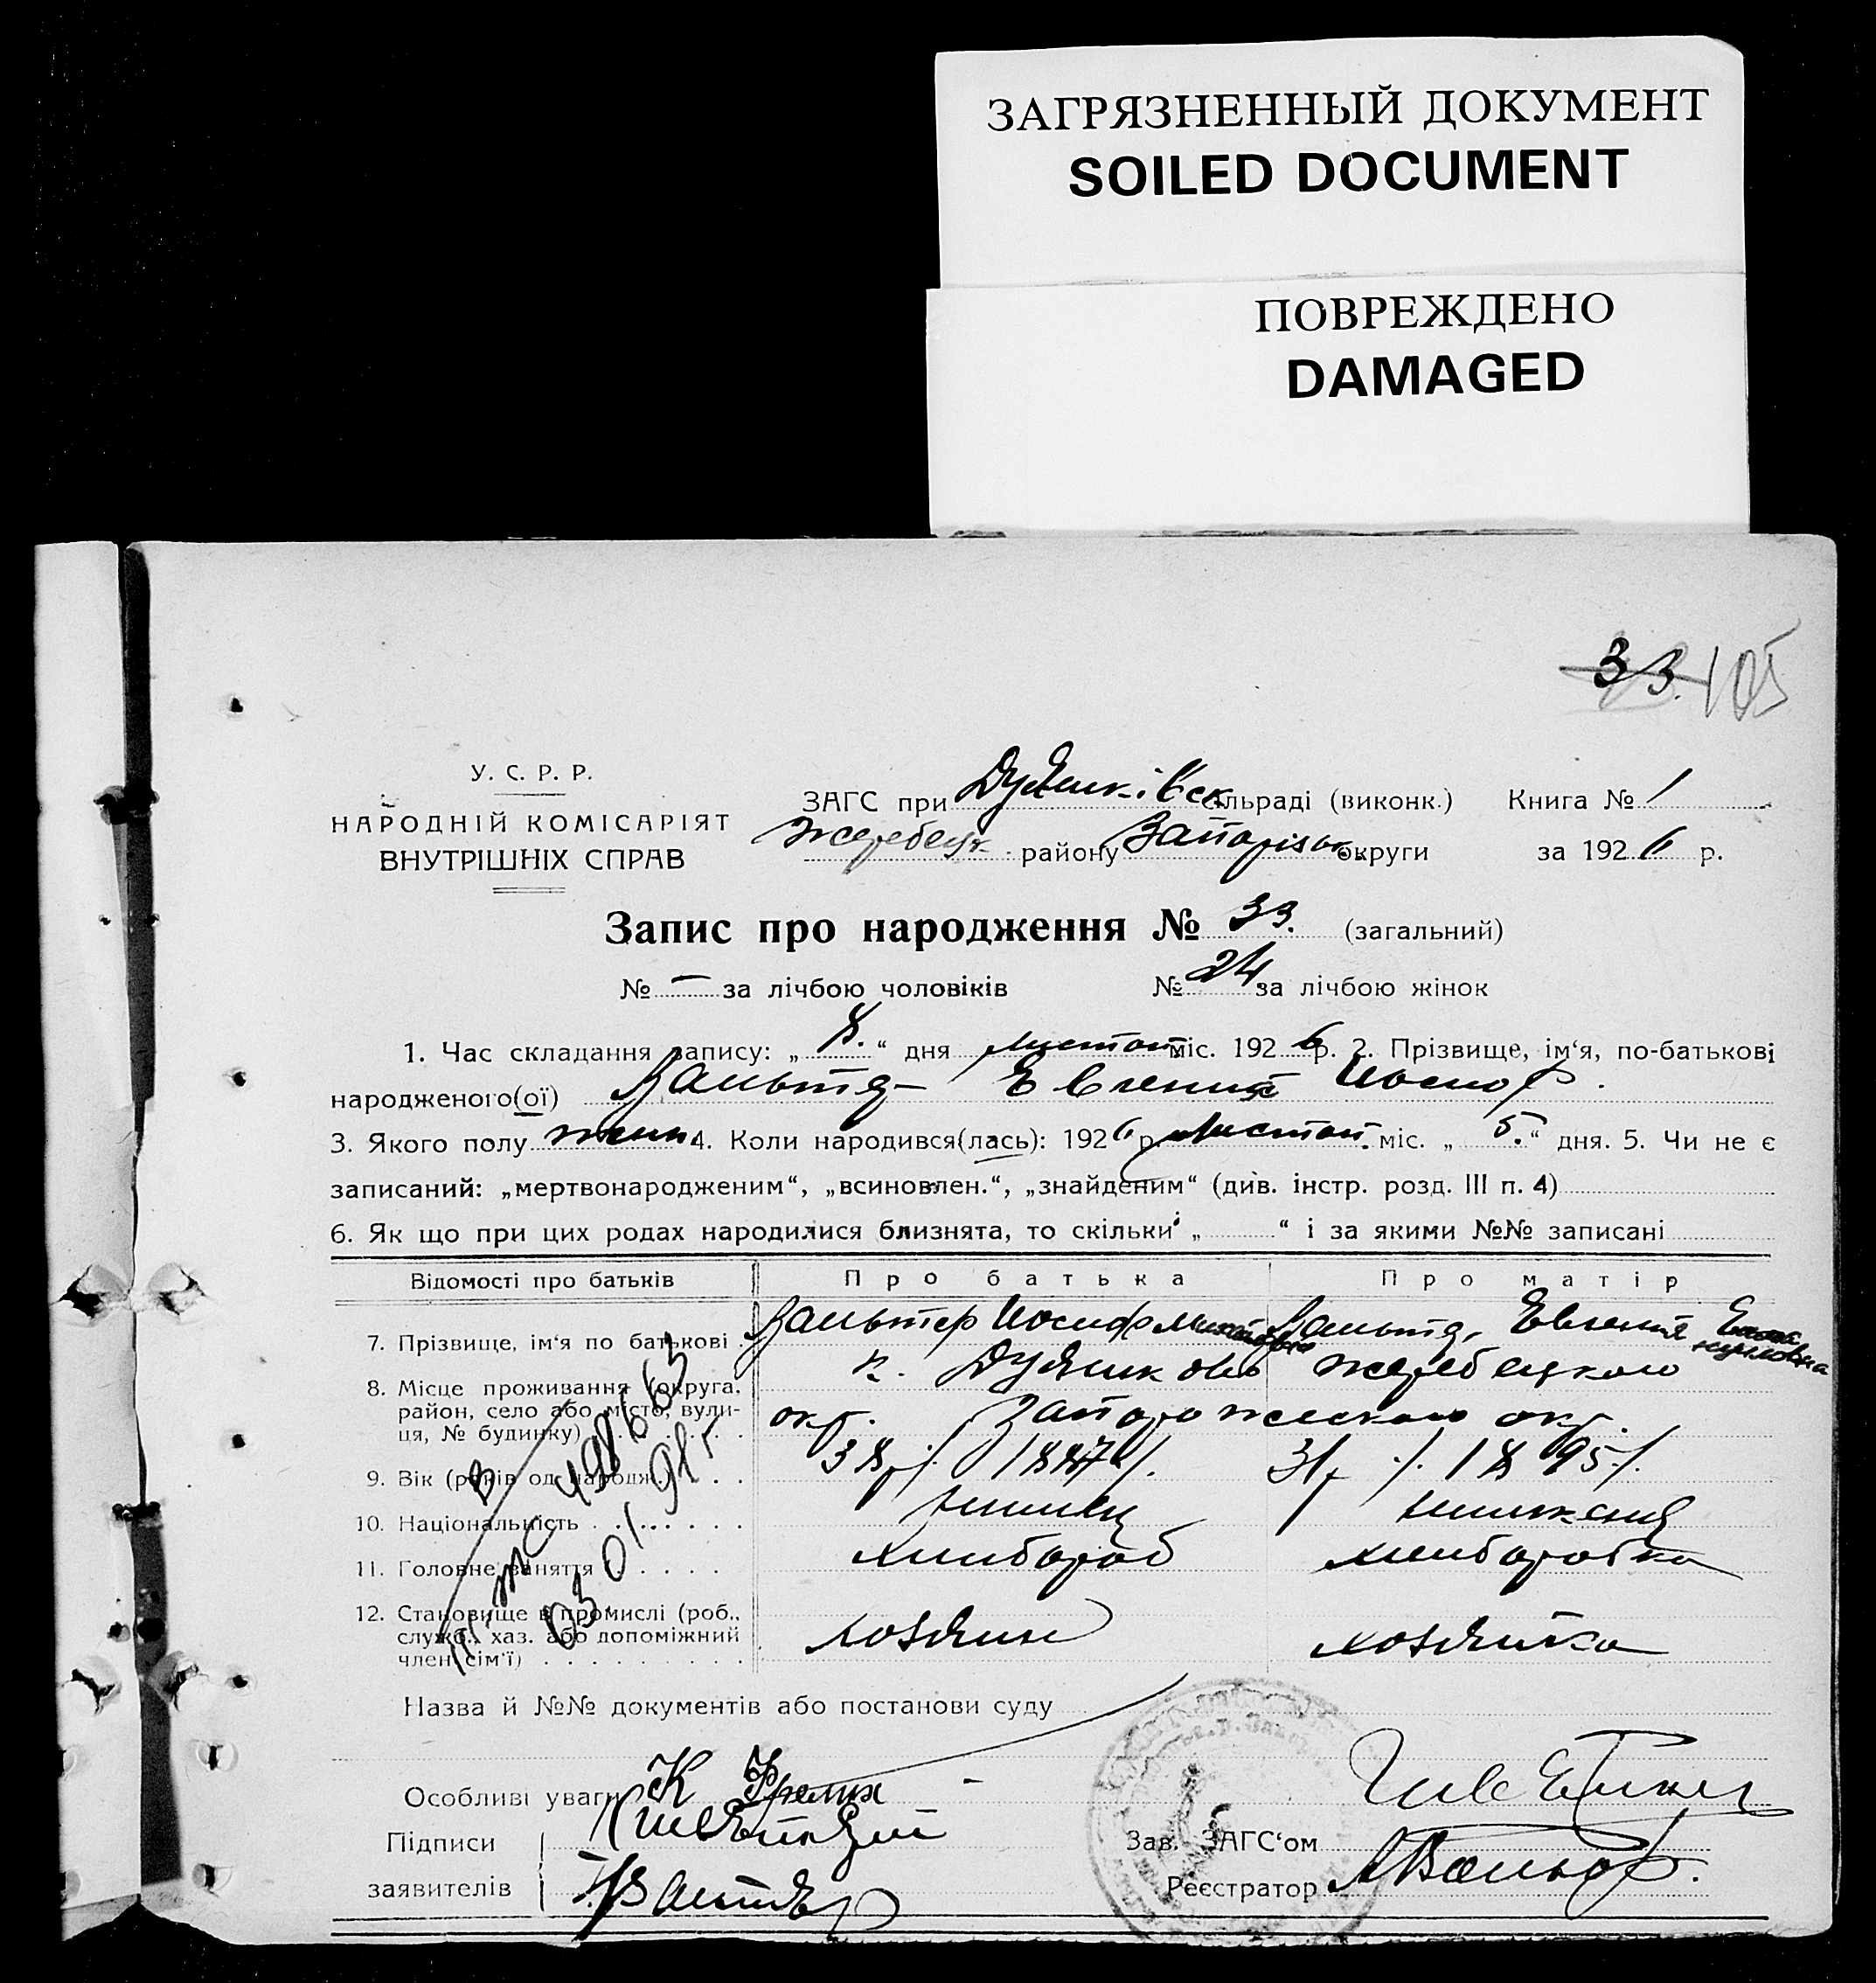 ЗАГРЯЗНЕННЫЙ ДОКУМЕНТ
SOILED DOCUMENT
ПОВРЕЖДЕНО
DAMAGED
33. 105
У. С. Р. Р.
НАРОДНІЙ КОМІСАРІЯТ
ВНУТРІШНІХ СПРАВ
ЗАГС при сільраді (виконк.) Книга № 1
Жеребецк. району Запорізьк. округи за 1926 р.
Запис про народження № 33. (загальний)
№ — за лічбою чоловіків № 24 за лічбою жінок
1. Час складання запису: „ 8. “ дня листоп міс. 1926 р. 2. Прізвище, ім‘я, по-батькові
народженого(ої) Вальтер Евгения Иосиф.
3. Якого полу жін. 4. Коли народився(лась): 1926 р. листоп. міс. „ 5. “ дня. 5. Чи не є
записаний: „мертвонародженим“, „всиновлен.“, „знайденим“ (див. інстр. розд. III п. 4)
6. Як що при цих родах народилися близнята, то скільки „ “ і за якими №№ записані
Відомості про батьків Про батька Про матір
7. Прізвище, ім‘я по батькові Вальтер Иосиф Вальтер Евгения
8. Місце проживання (округа, к. Жеребецкого
район, село або місто, вули-
ця, № будинку) Запорожского окр.
9. Вік (років од народж.) 38 31 1895
10. Національність німець німкеня
11. Головне заняття хлібороб хліборобка
12. Становище в промислі (роб., хозяин хозяйка
служб., хаз. або допоміжний
член сім‘ї)
Назва й №№ документів або постанови суду
Особливі уваги
Підписи Зав. ЗАГС‘ом
заявителів Реєстратор